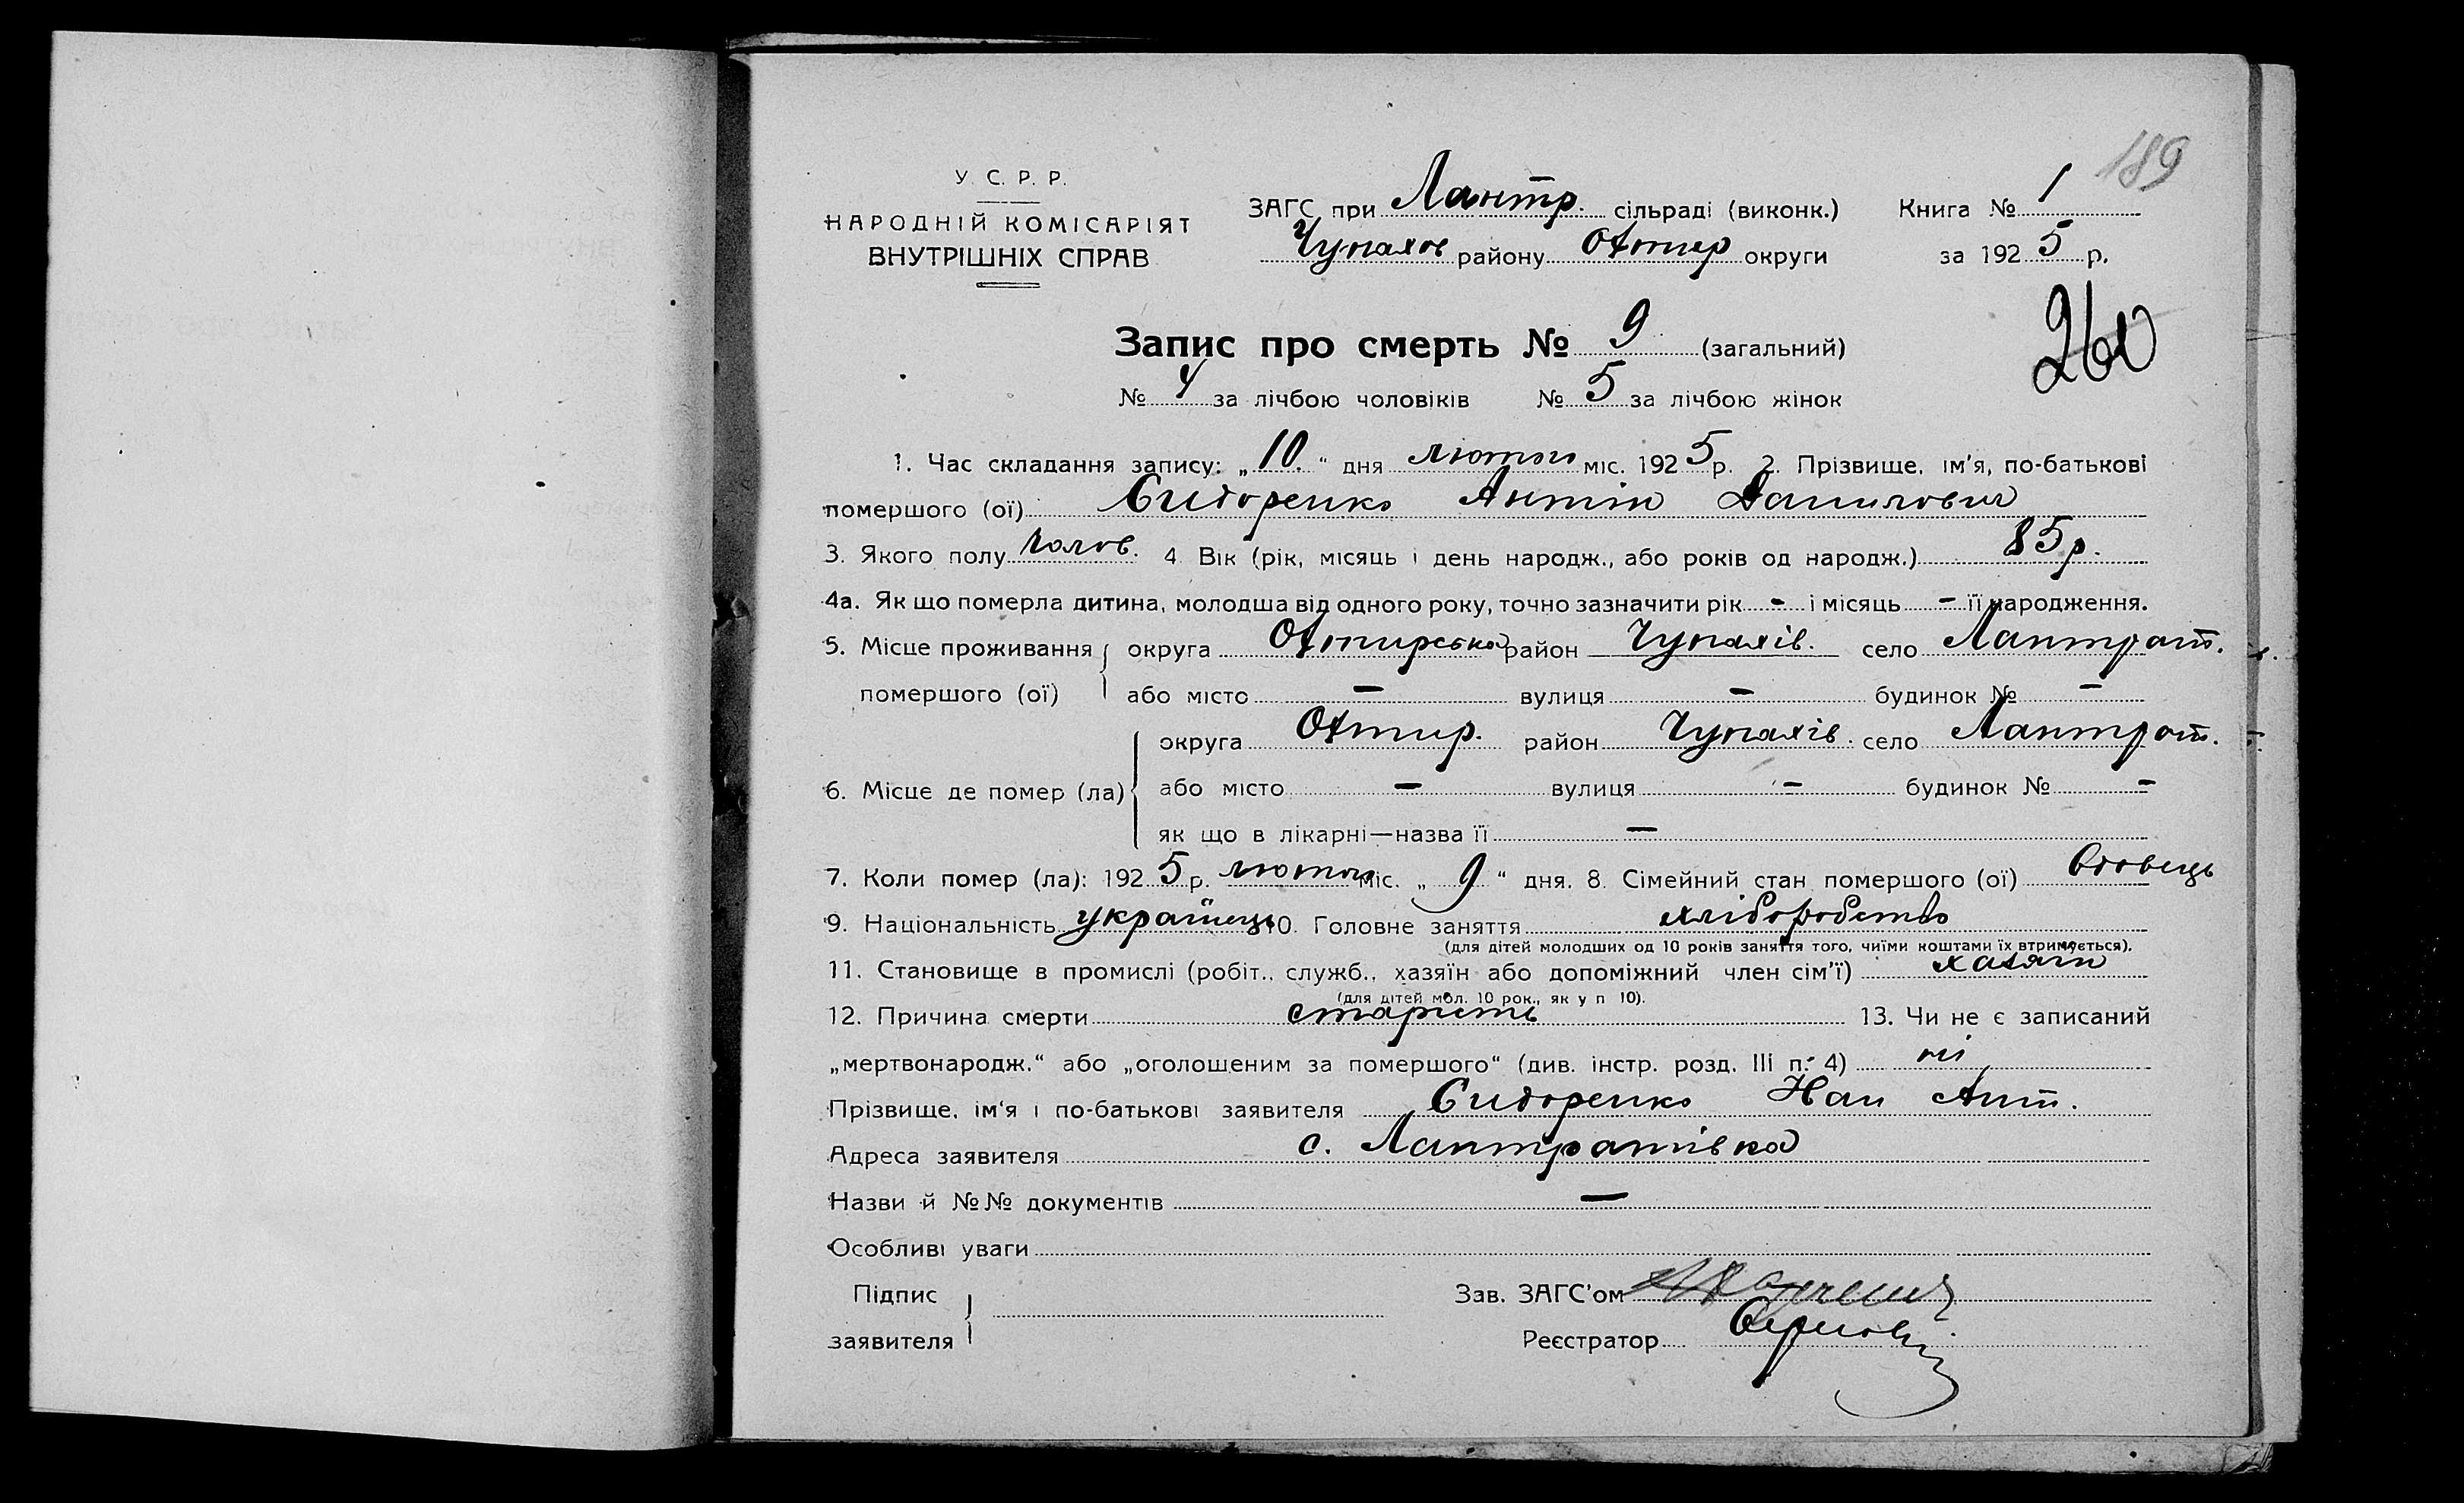 189
У. С. Р. Р.
НАРОДНІЙ КОМІСАРІЯТ
ВНУТРІШНІХ СПРАВ
ЗАГС при Лантр. сільраді (виконк.) Книга № 1
Чупахов району Охтир округи за 1925 р.
260
Запис про смерть № 9 (загальний)
№ 4 за лічбою чоловіків № 5 за лічбою жінок
1. Час складання запису: „10.“ дня лютого міс. 1925 р. 2. Прізвище, ім'я, по-батькові
помершого (ої) Сидоренко Антін Данилович
3. Якого полу чолов. 4. Вік (рік, місяць і день народж., або років од народж.) 85 р.
4а. Як що померла дитина, молодша від одного року, точно зазначити рік - і місяць - її народження.
5. Місце проживання округа Охтирська район Чупахів. село Лантрат.
помершого (ої) або місто — вулиця — будинок № —
округа Охтир. район Чупахів. село Лантрат.
6. Місце де помер (ла) або місто — вулиця — будинок № -
як що в лікарні—назва її —
7. Коли помер (ла): 1925 р. лютого міс. „9“ дня. 8. Сімейний стан помершого (ої) вдовець
9. Національність українець 10. Головне заняття хліборобство
(для дітей молодших од 10 років заняття того, чиїми коштами їх втримується).
11. Становище в промислі (робіт., служб., хазяїн або допоміжний член сім'ї) хазяїн
(для дітей мол. 10 рок., як у п 10).
12. Причина смерти старість 13. Чи не є записаний
„мертвонародж.“ або „оголошеним за помершого“ (див. інстр. розд. III п. 4) ні
Прізвище, ім'я і по-батькові заявителя Сидоренко Нан Ант.
Адреса заявителя с. Лантратівка
Назви й №№ документів —
Особливі уваги
Підпис Зав. ЗАГС'ом
заявителя Реєстратор